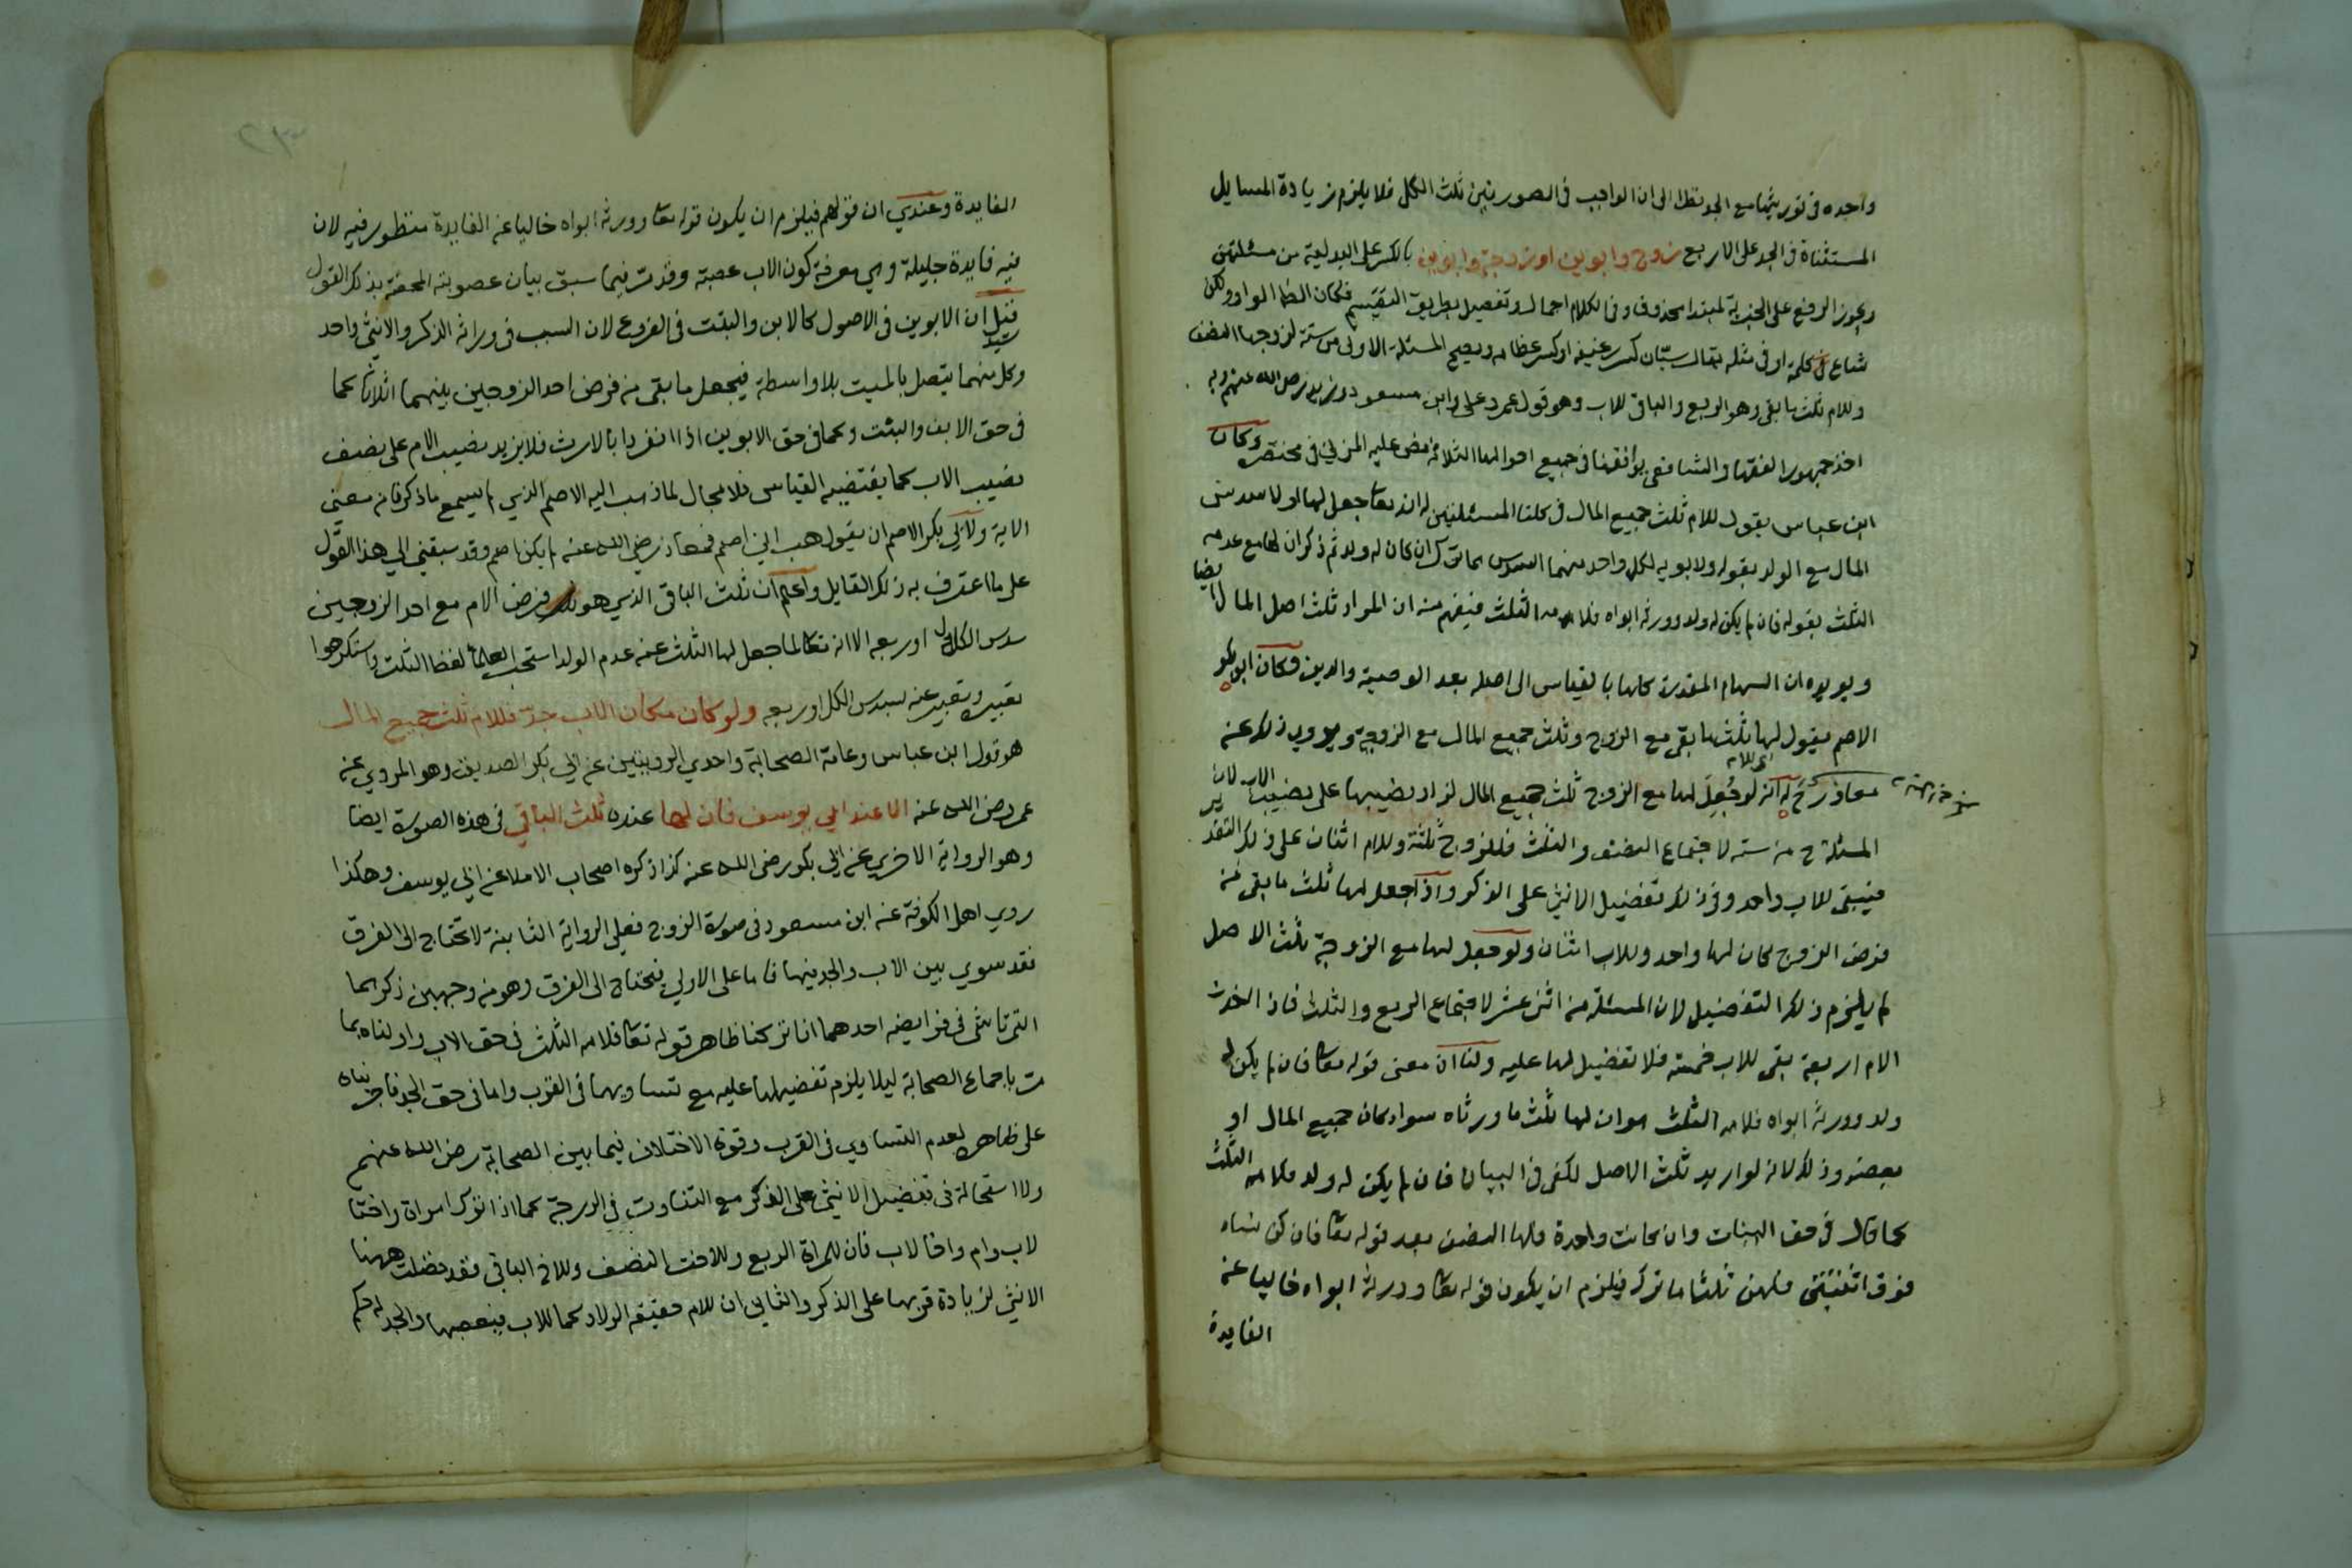 واحده في توريثها مع الجد نظرا الى ان الواجب في الصورتين ثلث الكل فلا يلزم زيادة المسايل
المستثناة في الجد على الاربع زوج وابوين او زوجة وابوين بالكسر على البدلية من مسئلتين
ويجوز الرفع على الخبرية لمبتدا محذوف وفي الكلام اجمال وتفصيل بطريق التقسيم فكان الظ الواو ولكن
شاع كلمة او في مثله يقال سيّان كسر رغيفه او كسر عظامه ويصح المسئلة الاولى من ستة لزوجها النصف
وللام ثلث ما بقى وهو الربع والباقي للاب وهو قول عمر وعلي وابن مسعود وزيد رضي الله عنهم وبه
اخذ جمهور الفقها والشافعي يوافقنا في جميع احوالها الثلاثة نص عليه المزني في مختصره وكان
ابن عباس يقول للام ثلث جميع المال في كلتا المسئلتين لانه تعا جعل لها اولا سدس
المال مع الولد بقوله ولابويه لكل واحد منهما السدس مما ترك ان كان له ولد ثم ذكر ان لها مع عدمه
الثلث بقوله فان لم يكن له ولد وورثه ابواه فلامه الثلث فيفهم منه ان المراد ثلث اصل المال ايضا
ويويده ان السهام المقدرة كلها بالقياس الى اصله بعد الوصية والدين وكان ابو بكر
الاصم يقول لها ثلث ما بقى مع الزوج وثلث جميع المال مع الزوجة ويروي ذلك عنه
اي للام
معاذ رضي لانه لو جُعِلَ لها مع الزوج ثلث جميع المال لزاد نصيبها على نصيب الاب لان
المسئلة ح من ستة لاجتماع النصف والثلث فللزوج ثلثة وللام اثنان على ذلك التقدير
فيبقى للاب واحد وفي ذلك تفضيل الانثى على الذكر واذا جعل لها ثلث ما بقى من
فرض الزوج كان لها واحد وللاب اثنان ولو جعل لها مع الزوجة ثلث الاصل
لم يلزم ذلك التفضيل لان المسئلة من اثنى عشر لاجتماع الربع والثلث فاذا اخذت
الام اربعة بقى للاب خمسة فلا تفضيل لها عليه ولنا ان معنى قوله تعا فان لم يكن له
ولد وورثه ابواه فلامه الثلث هو ان لها ثلث ما ورثاه سواء كان جميع المال او
بعضه وذلك لانه لو اريد ثلث الاصل لكفى في البيان فان لم يكن له ولد فلامه الثلث
كما قال في حق البنات وان كانت واحدة فلها النصف بعد قوله تعا فان كن نساء
فوق اثنتين فلهن ثلثا ما ترك فيلزم ان يكون قوله تعا وورثه ابواه خاليا عن
الفايدة
الفايدة وعندي ان قولهم فيلزم ان يكون قوله تعا وورثه ابواه خاليا عن الفايدة منظور فيه لان
فيه فايدة جليلة وهي معرفة كون الاب عصبة وقد مر فيما سبق بيان عصوبته المحضة بذكر القول
قيل ان الابوين في الاصول كالابن والبنت في الفروع لان السبب في وراثة الذكر والانثى واحد
وكل منهما يتصل بالميت بلا واسطة فيجعل ما بقى من فرض احد الزوجين بينهما اثلاثا كما
في حق الابن والبنت وكما في حق الابوين اذا انفردا بالارث فلا يزيد نصيب الام على نصف
نصيب الاب كما يقتضيه القياس فلا مجال لما ذهب اليه الاصم الذي لم يسمع ماذكرنا من معنى
الاية ولابي بكر الاصم ان يقول هب اني اصم فمعاذ رضي الله عنه لم يكن اصم وقد سبقني الي هذا القول
على ما اعترف به ذلك القايل واعلم ان ثلث الباقي الذي هو فرض الام مع احد الزوجين
سدس الكل اول او ربعه الا انه تعا لما جعل لها الثلث عند عدم الولد استحب العلما لفظ الثلث واستكرهوا
تغييره وتعبير عنه بسدس الكل او ربعه ولو كان مكان الاب جد فللام ثلث جميع المال
هو قول ابن عباس وعامة الصحابة واحدي الروايتين عن ابي بكر الصديق وهو المروي عن
عمر رضي الله عنه الا عند ابي يوسف فان لها عنده ثلث الباقي في هذه الصورة ايضا
وهو الرواية الاخري عن ابي بكر رضي الله عنه كذا ذكره اصحاب الاملا عن ابي يوسف وهكذا
روي اهل الكوفة عن ابن مسعود في صورة الزوج فعلي الرواية الثانية لا تحتاج الى الفرق
فقد سوي بين الاب والجد فيها فاما على الاولي فيحتاج الى الفرق وهو من وجهين ذكرهما
التمرتاشي في فرايضه احدهما انا تركنا ظاهر قوله تعا فلامه الثلث في حق الاب واولناه بما
مر باجماع الصحابة ليلا يلزم تفضيلها عليه مع تساويهما في القرب واما في حق الجد فاجريناه
على ظاهره لعدم التساوي في القرب وقوة الاختلاف فيما بين الصحابة رضي الله عنهم
ولا استحالة في تفضيل الانثى على الذكر مع التفاوت في الدرجة كما اذا ترك امراة واختا
لاب وام واخا لاب فان للمراة الربع وللاخت النصف وللاخ الباقي فقد فضلت ههنا
الانثى لزيادة قربها على الذكر والثاني ان للام حقيقة الولاد كما للاب فيعصبها والجد له حكم